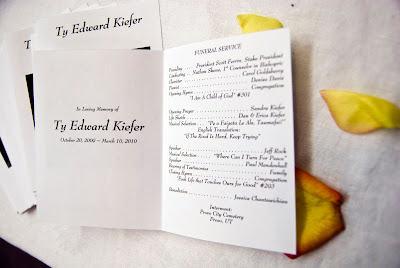 Ty Edward Kiefer
In Loving Memory of
Ty Edward Kiefer
October 20, 2006 ~ March 10, 2010
FUNERAL SERVICE
Presiding President Scott Perrin, Stake President
Conducting Nathan Shaw, 1st Counselor in Bishopric
Chorister Carol Goldsberry
Pianist Denise Davis
Opening Hymn Congregation
"I Am A Child of God" #301
Opening Prayer Sandra Kiefer
Life Sketch Dan & Erica Kiefer
Musical Selection
English Translation:
"If The Road Is Hard, Keep Trying"
Speaker Jeff Rock
Musical Selection "Where Can I Turn For Peace"
Speaker Paul
Bearing of Testimonies Family
Closing Hymn Congregation
"Each Life that Touches Ours for Good" #293
Benediction Jessica
Interment:
Provo City Cemetery
Provo, UT